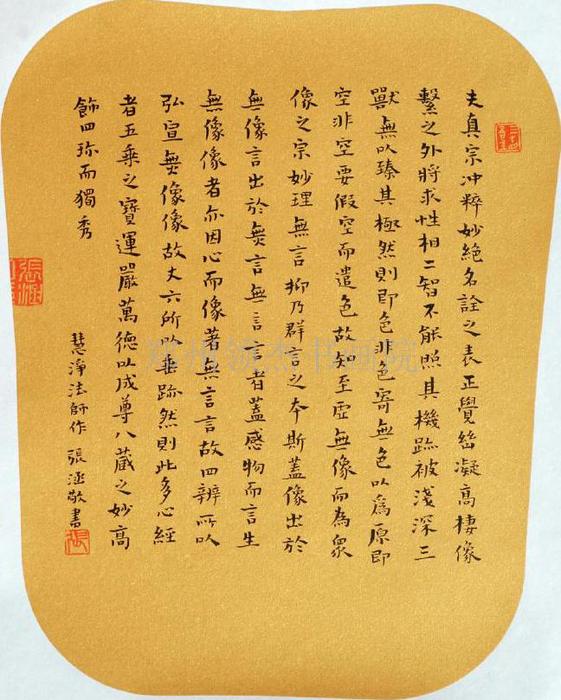 夫真宗冲粹妙絕名詮之表正覺幽凝高棲像
繫之外將求性相二智不能照其機跡被淺深三
獸無以臻其極然則即色非色寄無色以為原即
空非空要假空而遣色故知至虛無像而為眾
像之宗妙理無言抑乃群言之本斯蓋像出於
無像言出於無言無言言者蓋感物而言生
無像像者亦因心而像著無言言故四辨所以
弘宣無像像故丈六所以垂跡然則此多心經
者五乘之寶運嚴萬德以成尊八藏之妙高
飾四珍而獨秀
慧淨法師作 張涵敬書
張
張涵
郑州书画院